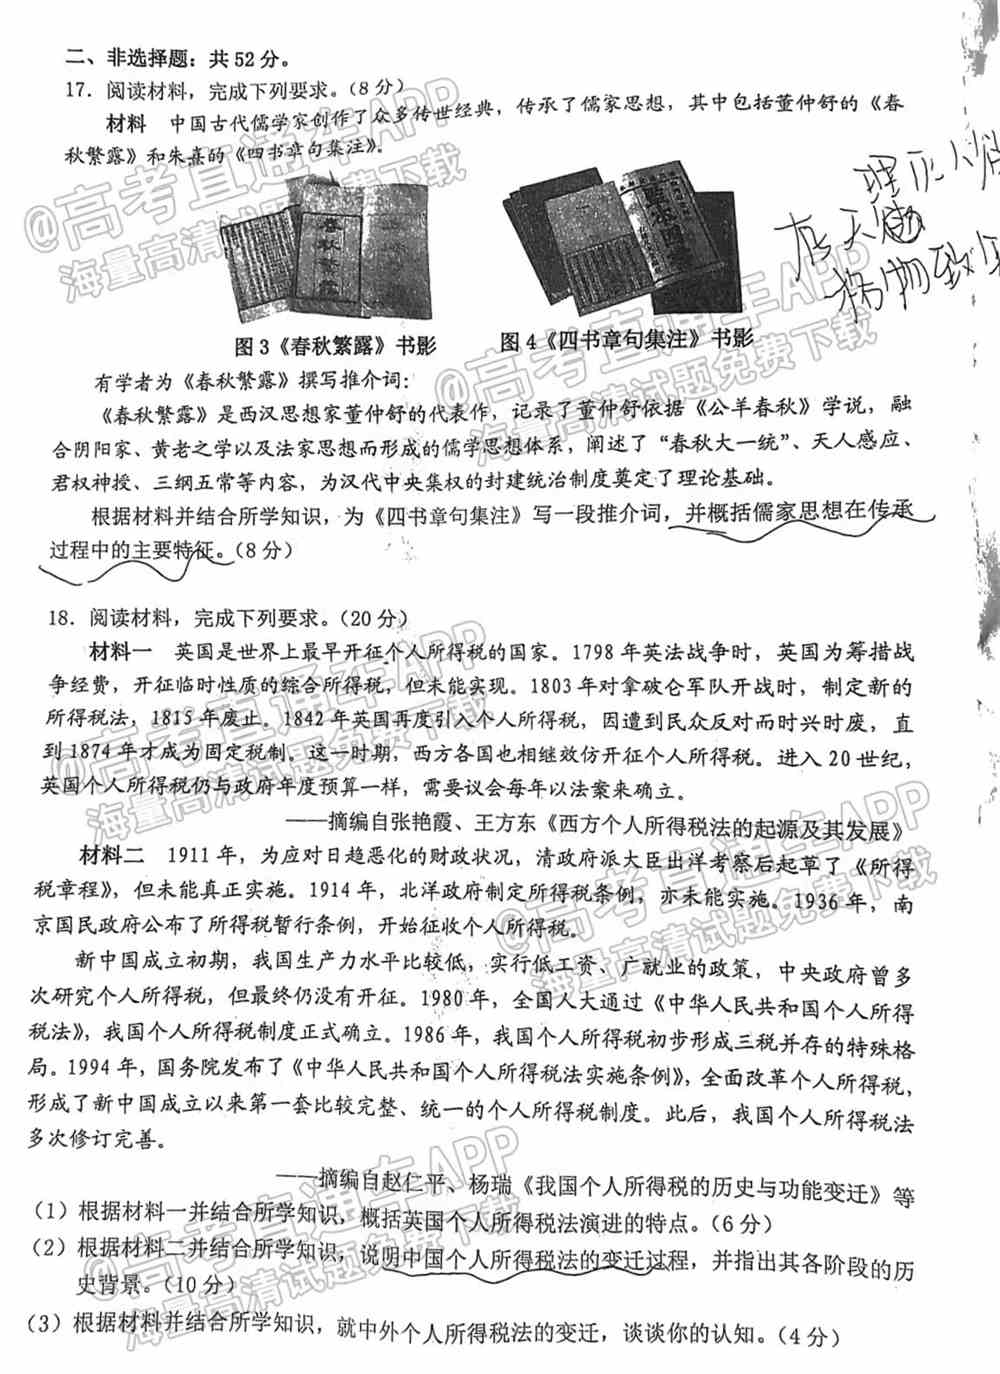 二、非选择题：共52分。
17．阅读材料，完成下列要求。（8分）
材料　中国古代儒学家创作了众多传世经典，传承了儒家思想，其中包括董仲舒的《春
秋繁露》和朱熹的《四书章句集注》。
春秋繁露
图3《春秋繁露》书影
图4《四书章句集注》书影
格物致
有学者为《春秋繁露》撰写推介词：
《春秋繁露》是西汉思想家董仲舒的代表作，记录了董仲舒依据《公羊春秋》学说，融
合阴阳家、黄老之学以及法家思想而形成的儒学思想体系，阐述了“春秋大一统”、天人感应、
君权神授、三纲五常等内容，为汉代中央集权的封建统治制度奠定了理论基础。
根据材料并结合所学知识，为《四书章句集注》写一段推介词，并概括儒家思想在传承
过程中的主要特征。（8分）
18．阅读材料，完成下列要求。（20分）
材料一　英国是世界上最早开征个人所得税的国家。1798年英法战争时，英国为筹措战
争经费，开征临时性质的综合所得税，但未能实现。1803年对拿破仑军队开战时，制定新的
所得税法，1815年废止。1842年英国再度引入个人所得税，因遭到民众反对而时兴时废，直
到1874年才成为固定税制。这一时期，西方各国也相继效仿开征个人所得税。进入20世纪，
英国个人所得税仍与政府年度预算一样，需要议会每年以法案来确立。
——摘编自张艳霞、王方东《西方个人所得税法的起源及其发展》
材料二　1911年，为应对日趋恶化的财政状况，清政府派大臣出洋考察后起草了《所得
税章程》，但未能真正实施。1914年，北洋政府制定所得税条例，亦未能实施。1936年，南
京国民政府公布了所得税暂行条例，开始征收个人所得税。
新中国成立初期，我国生产力水平比较低，实行低工资、广就业的政策，中央政府曾多
次研究个人所得税，但最终仍没有开征。1980年，全国人大通过《中华人民共和国个人所得
税法》，我国个人所得税制度正式确立。1986年，我国个人所得税初步形成三税并存的特殊格
局。1994年，国务院发布了《中华人民共和国个人所得税法实施条例》，全面改革个人所得税，
形成了新中国成立以来第一套比较完整、统一的个人所得税制度。此后，我国个人所得税法
多次修订完善。
——摘编自赵仁平、杨瑞《我国个人所得税的历史与功能变迁》等
（1）根据材料一并结合所学知识，概括英国个人所得税法演进的特点。（6分）
（2）根据材料二并结合所学知识，说明中国个人所得税法的变迁过程，并指出其各阶段的历
史背景。（10分）
（3）根据材料并结合所学知识，就中外个人所得税法的变迁，谈谈你的认知。（4分）
@高考直通车APP
海量高清试题免费下载
@高考直通车APP
海量高清试题免费下载
@高考直通车APP
海量高清试题免费下载
@高考直通车APP
海量高清试题免费下载
@高考直通车APP
海量高清试题免费下载